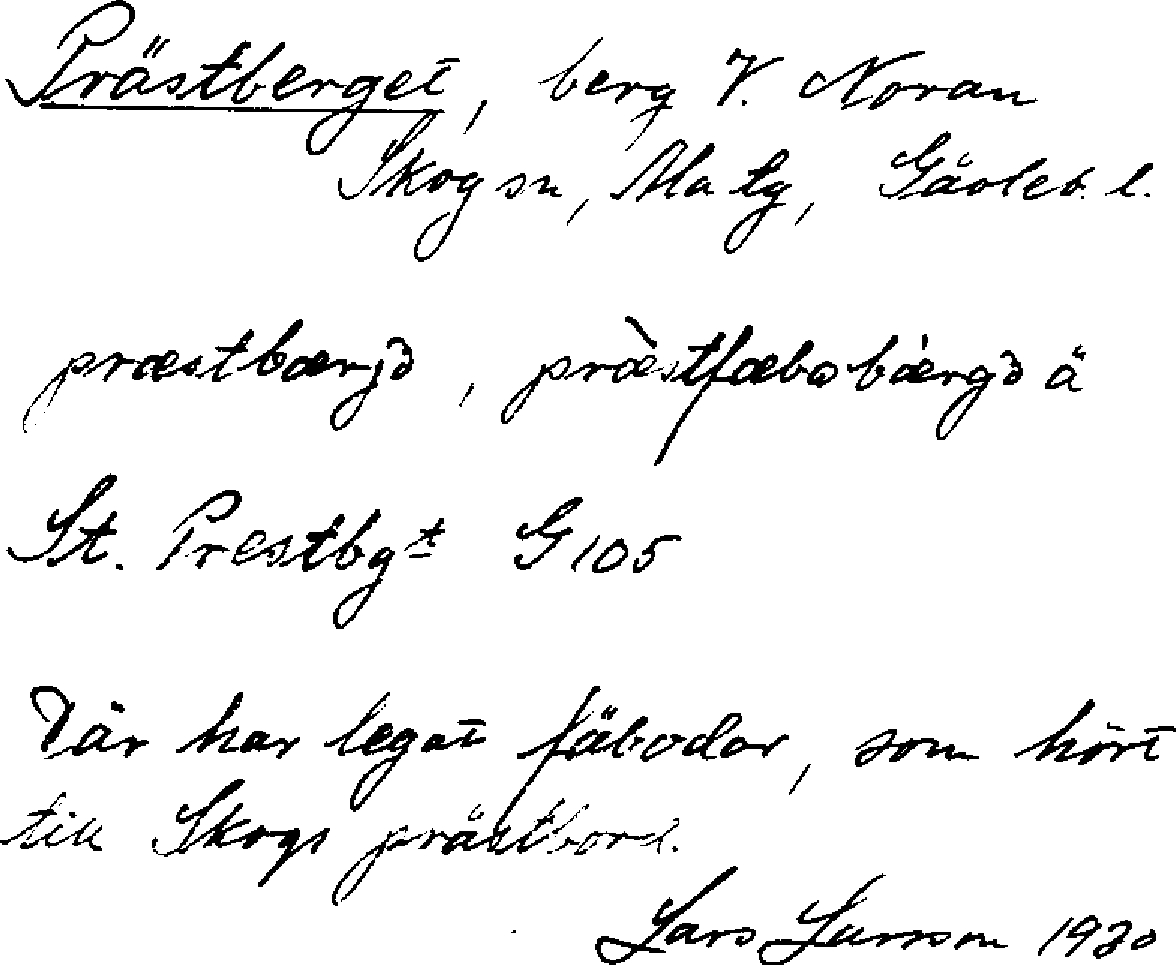 Prästberget, berg V. Noran
Skog sn, Ala tg, Gävleb. l.
præstbærjə, præ̀stfæbobærgə ä
St. Prestbgt G 105
Där har legat fäbodar, som hört
till Skogs prästbord.
Lars Larsson 1930